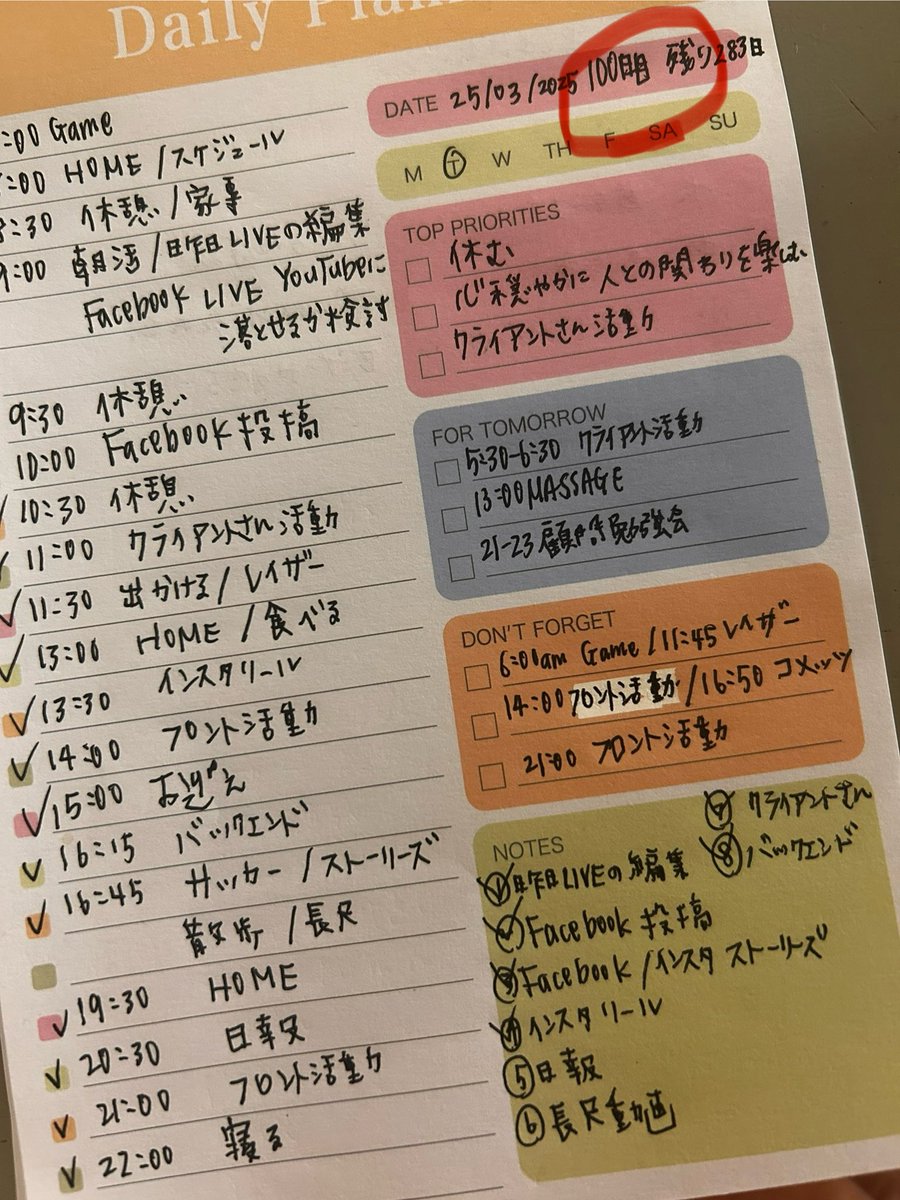 Daily Plan
:00 Game
:00 HOME / スケジュール
:30 休憩 / 家事
9:00 朝活 / 昨日LIVEの編集
Facebook LIVE YouTubeに
落とせるか検討
9:30 休憩
10:00 Facebook 投稿
10:30 休憩
11:00 クライアントさん活動
11:30 出かける / レイザー
13:00 HOME / 食べる
13:30 インスタリール
14:00 フロント活動
15:00 お迎え
16:15 バックエンド
16:45 サッカー / ストーリーズ
散歩 / 長尺
19:30 HOME
20:30 日報
21:00 フロント活動
22:00 寝る
DATE 25/03/2025 100日目 残り283日
M T W TH F SA SU
TOP PRIORITIES
休む
心穏やかに 人との関わりを楽しむ
クライアントさん活動
FOR TOMORROW
5:30-6:30 クライアント活動
13:00 MASSAGE
21-23 勉強会
DON'T FORGET
6:00am Game / 11:45 レイザー
14:00 フロント活動 / 16:50 コメッツ
21:00 フロント活動
NOTES
⑦ クライアントさん
⑧ バックエンド
① 昨日LIVEの編集
② Facebook 投稿
③ Facebook / インスタ ストーリーズ
④ インスタ リール
⑤ 日報
⑥ 長尺動画